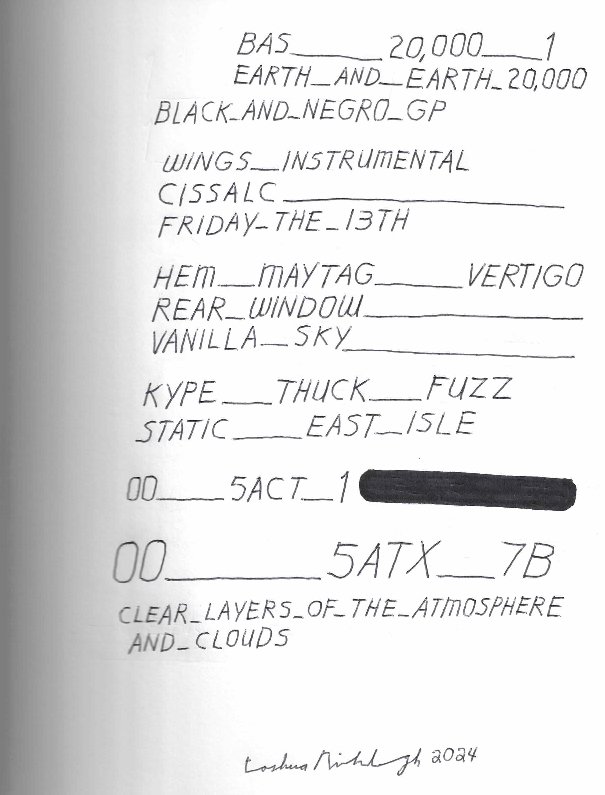 BAS______20,000____1
EARTH_AND_EARTH_20,000
BLACK_AND_NEGRO_GP
WINGS__INSTRUMENTAL
CISSALC____________________
FRIDAY_THE_13TH
HEM___MAYTAG______VERTIGO
REAR_WINDOW________________
VANILLA__SKY________________
KYPE____THUCK____FUZZ
STATIC_____EAST_ISLE
00_____5ACT__1
00___________5ATX____7B
CLEAR_LAYERS_OF_THE_ATMOSPHERE
AND_CLOUDS
Joshua 2024